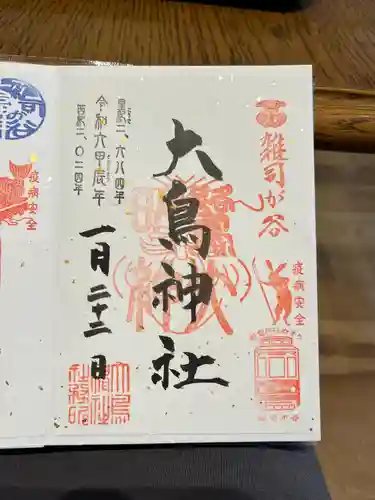 雑司が谷
疫病安全
大鳥神社
皇紀二、六八四年
令和六甲辰年
西暦二、〇二四年
一月二十三日
疫病安全